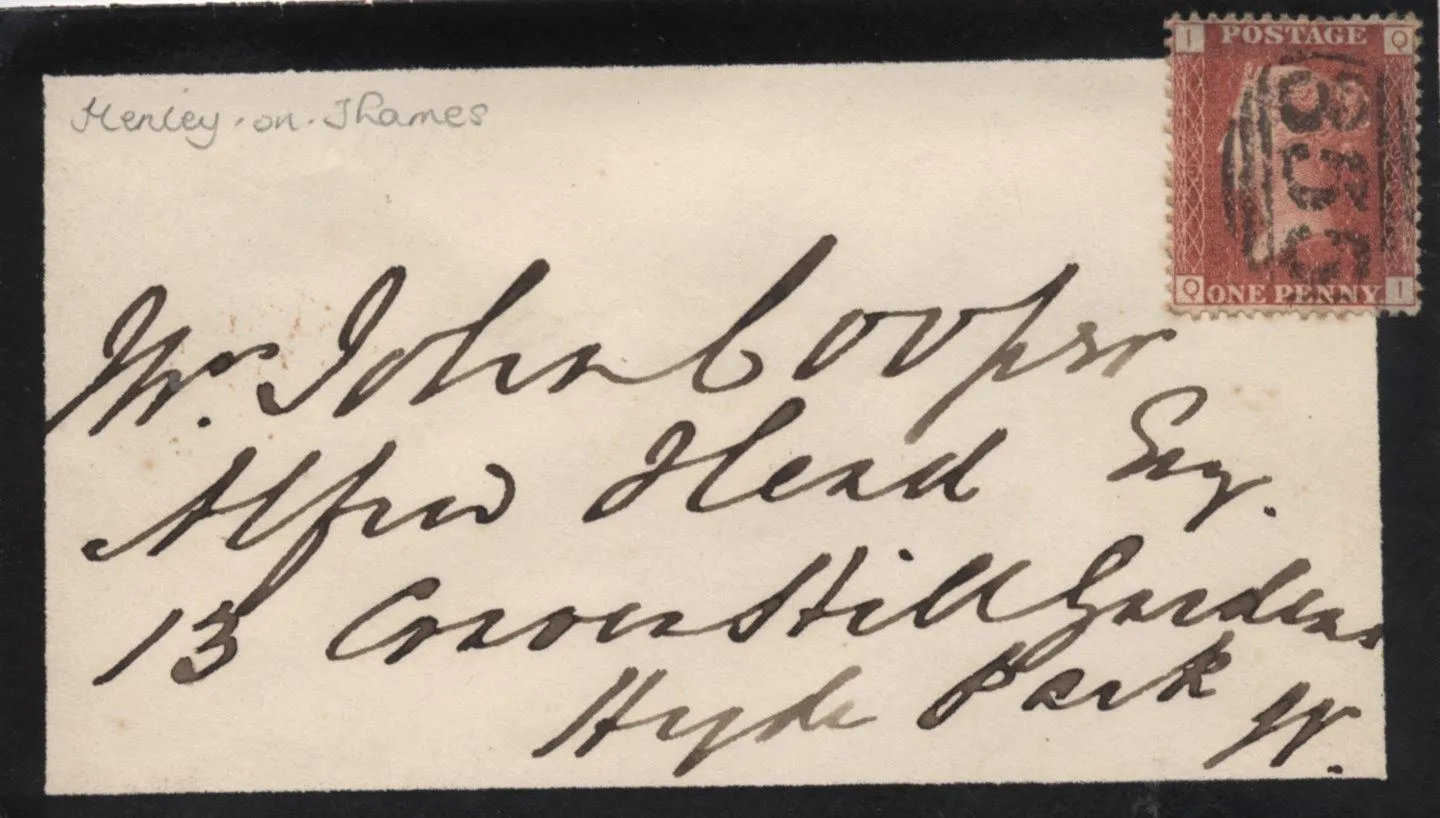 I POSTAGE Q
Henley-on-Thames
Q ONE PENNY I
Mr. John Cooper
Alfred Head Esq.
13 Craven Hill Gardens
Hyde Park
W.